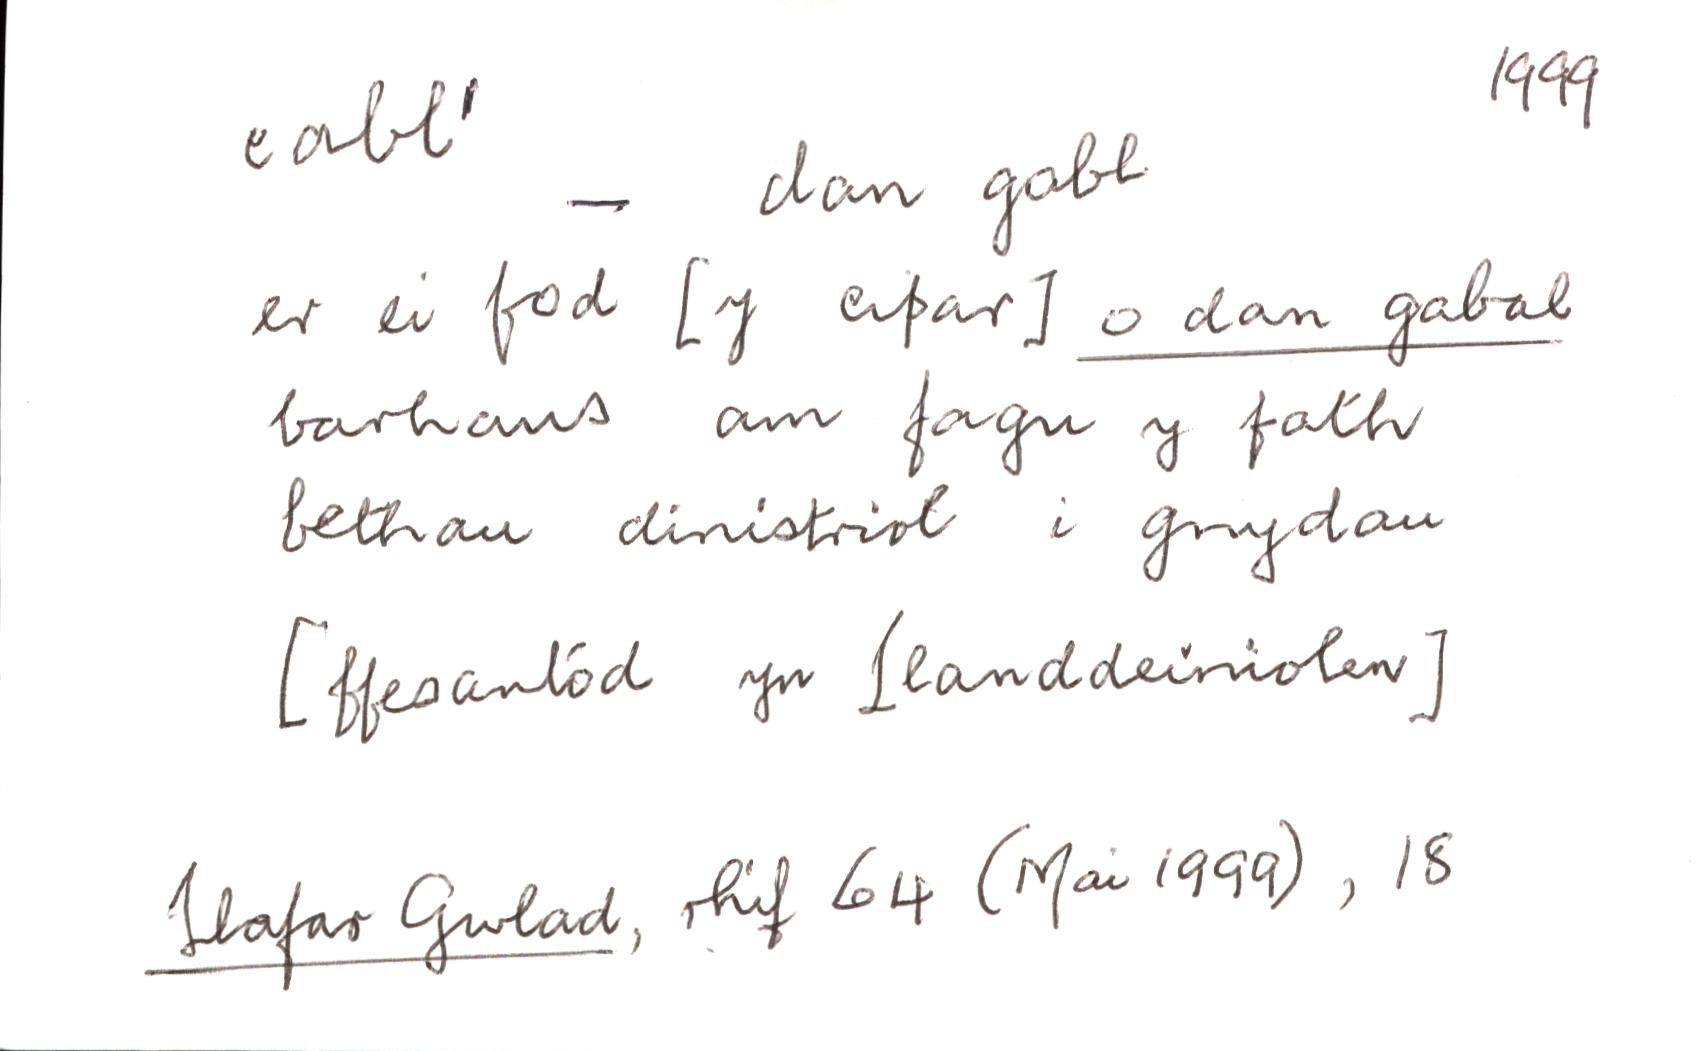 1999
cabl¹
— dan gabl
er ei fod [y cipar] o dan gabal
barhaus am fagu y fath
bethau dinistriol i gnydau
[ffesantod yn Llanddeiniolen]
Llafar Gwlad, rhif 64 (Mai 1999), 18